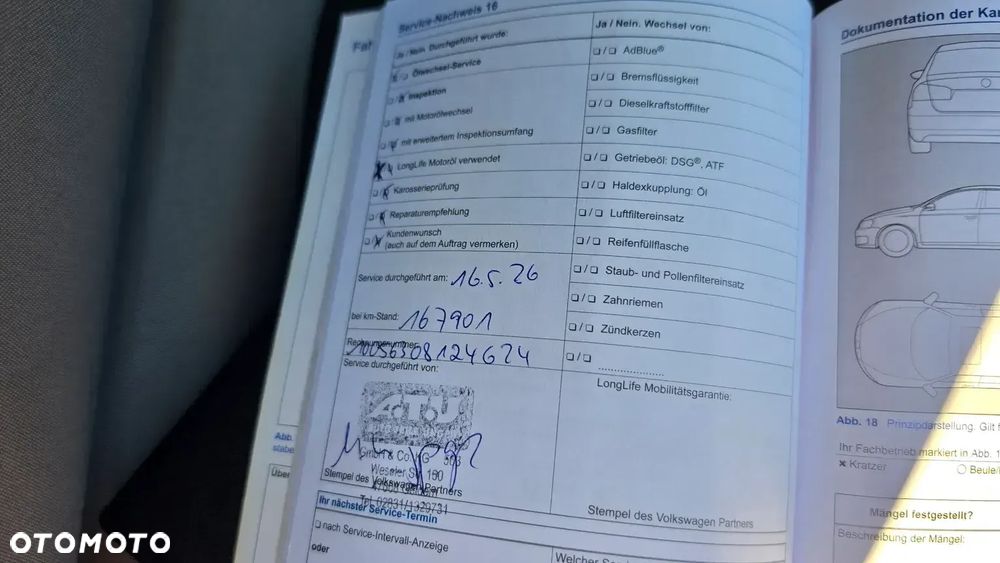 Service-Nachweis 16
Ja / Nein. Durchgeführt wurde:
Ölwechsel-Service
Inspektion
mit Motorölwechsel
mit erweitertem Inspektionsumfang
LongLife Motoröl verwendet
Karosserieprüfung
Reparaturempfehlung
Kundenwunsch
(auch auf dem Auftrag vermerken)
Service durchgeführt am: 16.5.26
bei km-Stand: 167901
Rechnungsnummer:
Service durchgeführt von:
GmbH & Co. KG
Weseler Str. 160
Stempel des Volkswagen Partners
Tel. 02831/1329731
Ihr nächster Service-Termin
❑ nach Service-Intervall-Anzeige
oder
Ja / Nein. Wechsel von:
❑ / ❑ AdBlue®
❑ / ❑ Bremsflüssigkeit
❑ / ❑ Dieselkraftstofffilter
❑ / ❑ Gasfilter
❑ / ❑ Getriebeöl: DSG®, ATF
❑ / ❑ Haldexkupplung: Öl
❑ / ❑ Luftfiltereinsatz
❑ / ❑ Reifenfüllflasche
❑ / ❑ Staub- und Pollenfiltereinsatz
❑ / ❑ Zahnriemen
❑ / ❑ Zündkerzen
❑ / ❑ ....................
LongLife Mobilitätsgarantie:
Stempel des Volkswagen Partners
Dokumentation der Ka
Abb. 18 Prinzipdarstellung. Gilt f
Ihr Fachbetrieb markiert in Abb. 1
✖ Kratzer
○ Beule/
Mängel festgestellt?
Beschreibung der Mängel:
Abb.
OTOMOTO